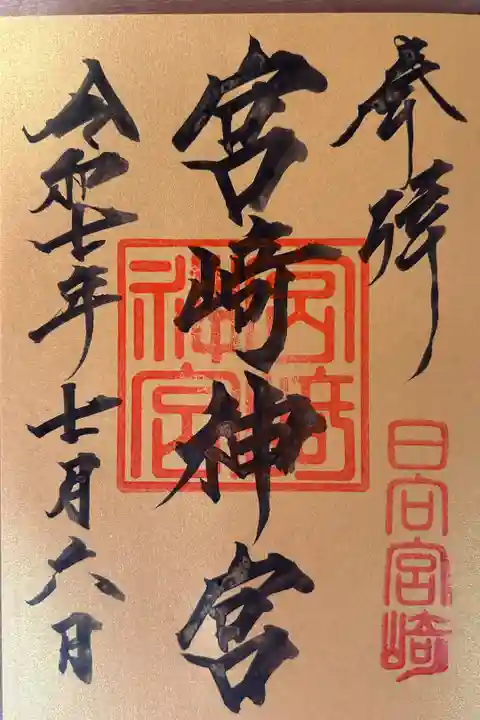 奉拝
日向宮崎
宮崎神宮
宮崎神宮
令和七年七月六日